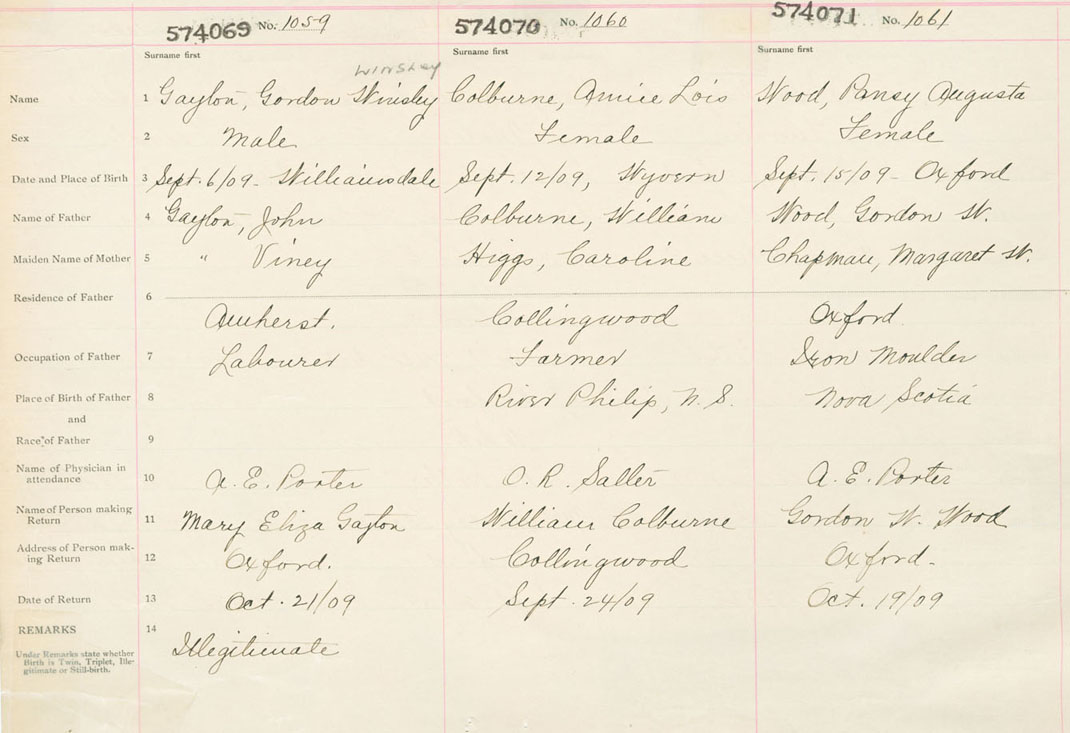 574069 No. 1059 574070 No. 1060 574071 No. 1061
Surname first Surname first Surname first
WINSLEY
Name 1 Gayton, Gordon Winsley Colburne, Annie Lois Wood, Pansy Augusta
Sex 2 Male Female Female
Date and Place of Birth 3 Sept. 6/09 - Williamsdale Sept. 12/09, Wyvern Sept. 15/09 - Oxford
Name of Father 4 Gayton, John Colburne, William Wood, Gordon W.
Maiden Name of Mother 5 " Viney Higgs, Caroline Chapman, Margaret W.
Residence of Father 6 Amherst. Collingwood Oxford
Occupation of Father 7 Labourer Farmer Iron Moulder
Place of Birth of Father 8 River Philip, N. S. Nova Scotia
and
Race of Father 9
Name of Physician in
attendance 10 A. E. Porter O. R. Salter A. E. Porter
Name of Person making
Return 11 Mary Eliza Gayton William Colburne Gordon W. Wood
Address of Person mak-
ing Return 12 Oxford. Collingwood Oxford -
Date of Return 13 Oct. 21/09 Sept. 24/09 Oct. 19/09
REMARKS 14 Illegitimate
Under Remarks state whether
Birth is Twin, Triplet, Ille-
gitimate or Still-birth.